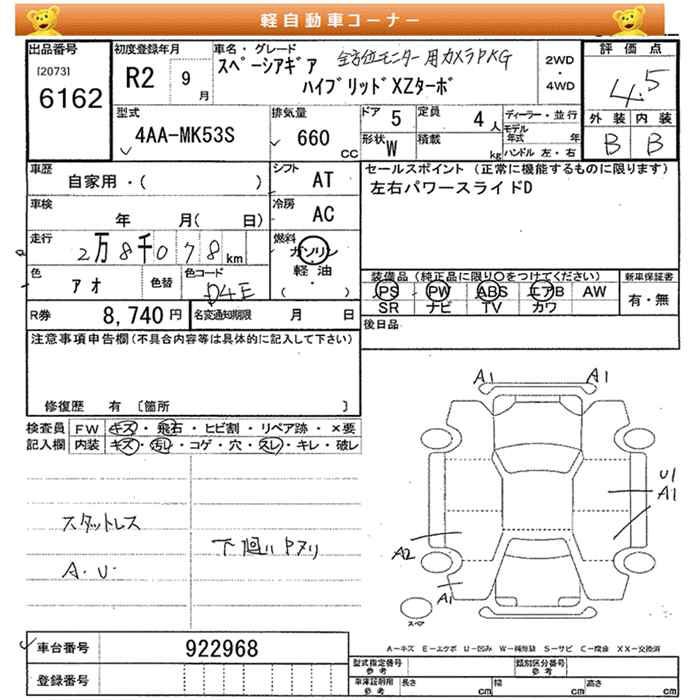 軽自動車コーナー
出品番号 初度登録年月 車名・グレード 全方位モニター用カメラPKG 2WD・4WD 評価点
[2073] 6162 R2 9月 スペーシアギア ハイブリッドXZターボ 4.5
型式 排気量 ドア 5 定員 4人 ディーラー・並行 外装 内装
4AA-MK53S 660 CC 形状 W 積載 kg モデル年式 年 B B
ハンドル 左・右
車歴 シフト セールスポイント(正常に機能するものに限ります)
自家用・( ) AT 左右パワースライドD
車検 年 月( 日) 冷房 AC
走行 2万8千078km 燃料 ガソリン 軽油 (・)
色 アオ 色替 色コード D4E
装備品(純正品に限り○をつけてください) 新車保証書
PS PW ABS エアB AW 有・無
SR ナビ TV カワ
R券 8,740円 名変通知期限 月 日 後日品
注意事項申告欄(不具合内容等は具体的に記入して下さい)
修復歴 有 〔箇所 〕
検査員 FW キズ・飛石・ヒビ割・リペア跡・×要
記入欄 内装 キズ・汚レ・コゲ・穴・スレ・キレ・破レ
A1 A1
U1
A1
スタットレス
下廻りPヌリ
A2
A.U.
A1
スペア
A-キズ E-エクボ U-凹み W-補修跡 S-サビ C-腐食 XX-交換済
車台番号 922968
登録番号
型式指定番号 参考 類別区分番号 参考
車庫証明用 参考 長さ cm 幅 cm 高さ cm